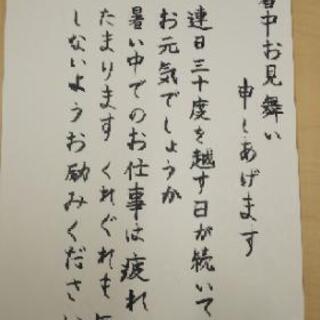 暑中お見舞い
申しあげます
連日三十度を越す日が続いて
お元気でしょうか
暑い中でのお仕事は疲れ
たまります くれぐれも
しないようお励みください